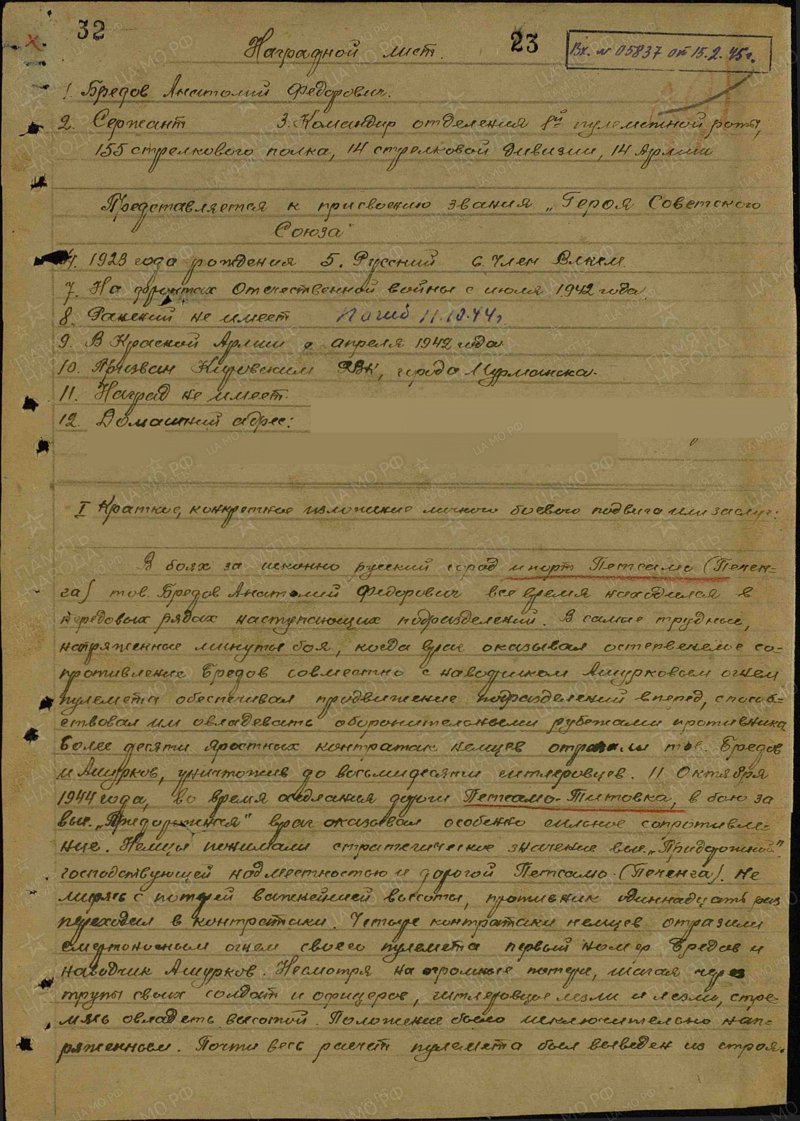 32
23
Вх. № 05837 от 15.2.45г.
Наградной лист.
1. Бредов Анатолий Федорович.
2. Сержант 3. Командир отделения 1й пулеметной роты,
155 стрелкового полка, 14 стрелковой дивизии, 14 Армии
Представляется к присвоению звания „Героя Советского
Союза"
4. 1923 года рождения 5. Русский 6. Член Влксм
7. На фронтах Отечественной войны с июля 1942 года.
8. Ранений не имеет Погиб 11.10.44г
9. В Красной Армии с апреля 1942 года
10. Призван Кировским РВК, города Мурманска.
11. Наград не имеет.
12. Домашний адрес:
I Краткое, конкретное изложение личного боевого подвига или заслуг:
В боях за исконно русский город и порт Петсамо (Печен-
га) тов. Бредов Анатолий Федорович все время находился в
передовых рядах наступающих подразделений. В самые трудные,
напряженные минуты боя, когда враг оказывал остервенелое со-
противление Бредов совместно с наводчиком Ашурковым огнем
пулемета обеспечивал продвижение подразделений вперед, способ-
ствовал им овладевать оборонительными рубежами противника
Более десяти яростных контратак немцев отразили тов. Бредов
и Ашурков, уничтожив до восьмидесяти гитлеровцев. 11 Октября
1944 года, во время седлания дороги Петсамо-Титовка, в бою за
выс. „Придорожная" враг оказывал особенно сильное сопротивле-
ние. Немцы понимали стратегическое значение выс. „Придорожной"
господствующей над местностью и дорогой Петсамо (Печенга). Не
мирясь с потерей важнейшей высоты, противник одиннадцать раз
переходил в контратаки. Четыре контратаки немцев отразили
смертоносным огнем своего пулемета первый номер Бредов и
наводчик Ашурков. Несмотря на огромные потери, шагая через
трупы своих солдат и офицеров, гитлеровцы лезли и лезли, стре-
мясь овладеть высотой. Положение было исключительно нап-
ряженным. Почти весь расчет пулемета был выведен из строя.